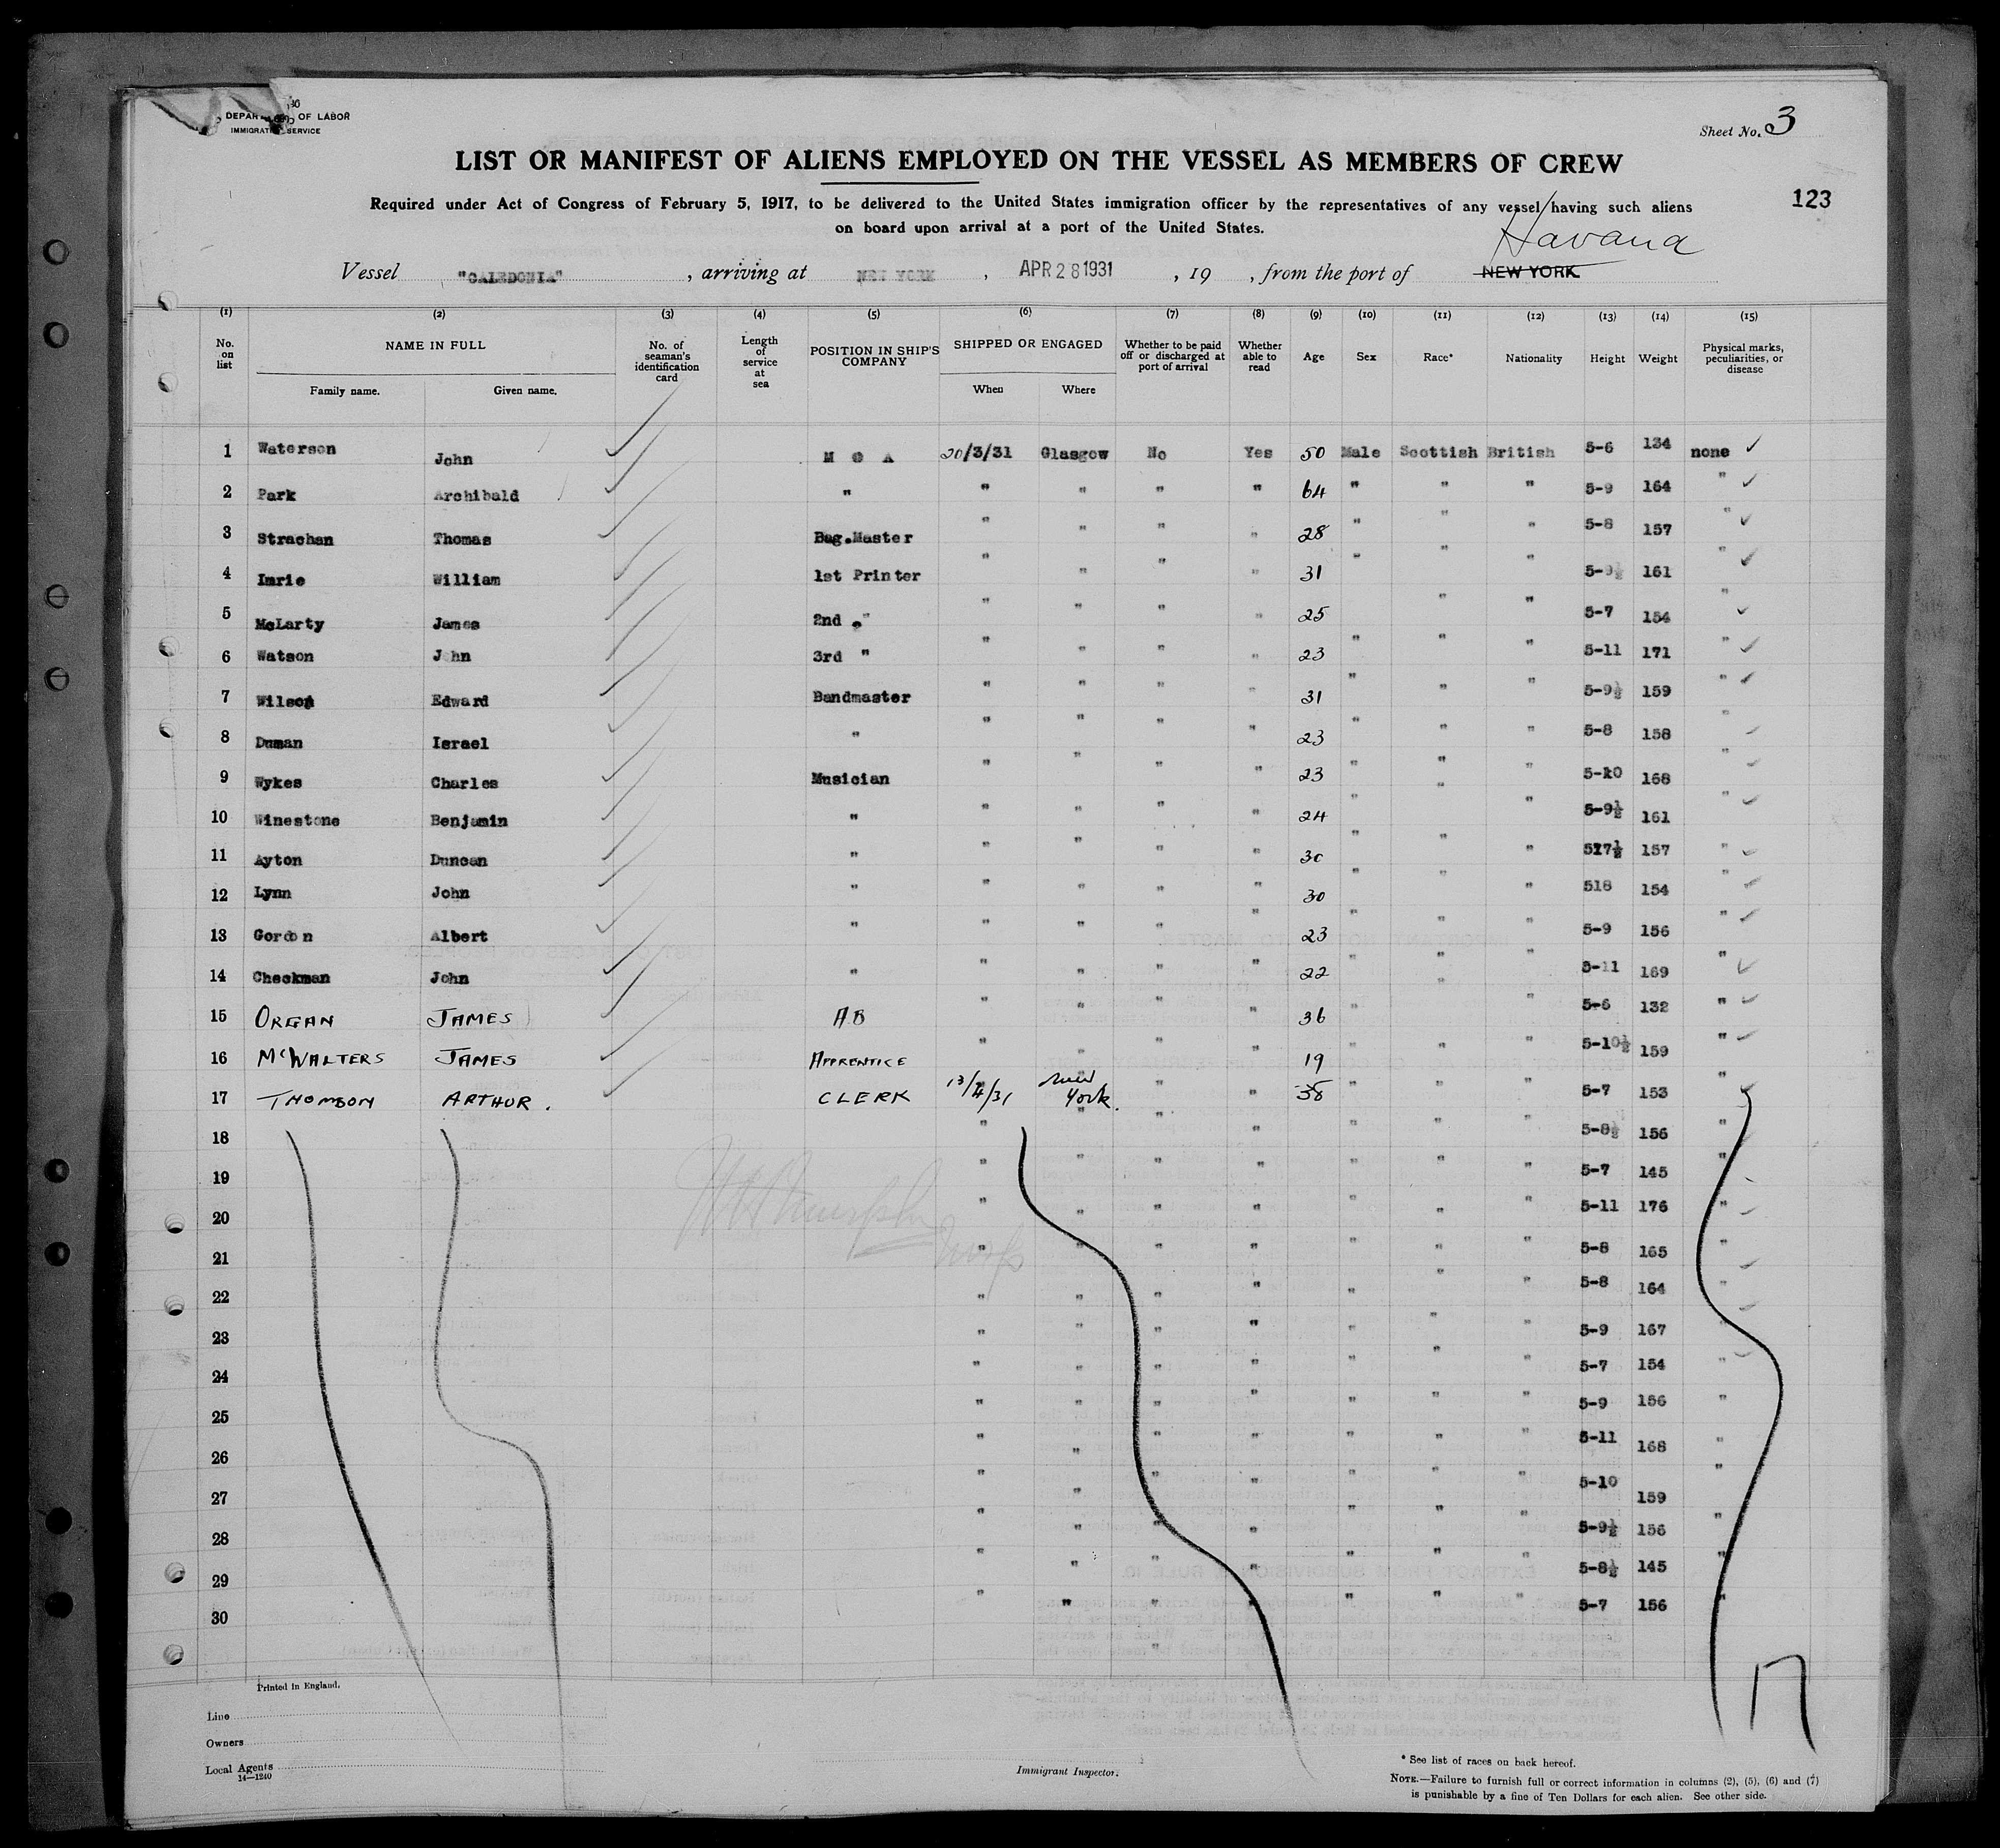 DEPAR OF LABOR
IMMIGRAT SERVICE
Sheet No. 3
LIST OR MANIFEST OF ALIENS EMPLOYED ON THE VESSEL AS MEMBERS OF CREW
123
Required under Act of Congress of February 5, 1917, to be delivered to the United States immigration officer by the representatives of any vessel having such aliens
on board upon arrival at a port of the United States.
Havana
Vessel "CALEDONIA" , arriving at NEW YORK , APR 28 1931 , 19 , from the port of NEW YORK
(1) (2) (3) (4) (5) (6) (7) (8) (9) (10) (11) (12) (13) (14) (15)
No. on list NAME IN FULL Family name. Given name. No. of seaman's identification card Length of service at sea POSITION IN SHIP'S COMPANY SHIPPED OR ENGAGED When Where Whether to be paid off or discharged at port of arrival Whether able to read Age Sex Race* Nationality Height Weight Physical marks, peculiarities, or disease
1 Waterson John M O A 20/3/31 Glasgow No Yes 50 Male Scottish British 5-6 134 none ✓
2 Park Archibald " " " " " 64 " " " 5-9 164 " ✓
3 Strachan Thomas Bag.Master " " " " 28 " " " 5-8 157 " ✓
4 Imrie William 1st Printer " " " " 31 " " " 5-9½ 161 " ✓
5 McLarty James 2nd " " " " " 25 " " 5-7 154 " ✓
6 Watson John 3rd " " " " " 23 " " " 5-11 171 " ✓
7 Wilson Edward Bandmaster " " " " 31 " " " 5-9½ 159 " ✓
8 Duman Israel " " " " " 23 " " " 5-8 158 " ✓
9 Wykes Charles Musician " " " " 23 " " " 5-10 168 " ✓
10 Winestone Benjamin " " " " " 24 " " " 5-9½ 161 " ✓
11 Ayton Duncan " " " " " 30 " " " 517½ 157 " ✓
12 Lynn John " " " " " 30 " " " 518 154 " ✓
13 Gordon Albert " " " " " 23 " " " 5-9 156 " ✓
14 Checkman John " " " " " 22 " " " 5-11 169 " ✓
15 ORGAN JAMES AB " " " " 36 " " " 5-6 132 " ✓
16 McWALTERS JAMES APPRENTICE " " " " 19 " " " 5-10½ 159 " ✓
17 THOMSON ARTHUR. CLERK 13/4/31 New York. " " 38 " " " 5-7 153 " ✓
18 " " " " " " " 5-8½ 156 "
19 " " " " " " " 5-7 145 "
20 " " " " " " " 5-11 176 "
21 " " " " " " " 5-8 165 "
22 " " " " " " " 5-8 164 "
23 " " " " " " " 5-9 167 "
24 " " " " " " " 5-7 154 "
25 " " " " " " " 5-9 156 "
26 " " " " " " " 5-11 168 "
27 " " " " " " " 5-10 159 "
28 " " " " " " " 5-9½ 156 "
29 " " " " " " " 5-8½ 145 "
30 " " " " " " 5-7 156 "
17
Printed in England.
Line
Owners
Local Agents
14—1240
Immigrant Inspector.
* See list of races on back hereof.
NOTE.—Failure to furnish full or correct information in columns (2), (5), (6) and (7)
is punishable by a fine of Ten Dollars for each alien. See other side.